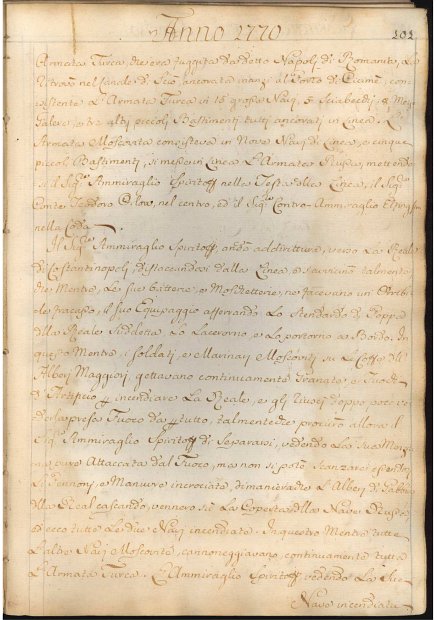 Anno 1770
101
Armata Turca, che era fuggita da detto Napolj di Romania, La
ritrovò nel Canale di Scio ancorata inanzi al Porto di Cismè, con-
sistente L'Armata Turca in 16 grosse Navj, 6 Sciabecchi, 4 Mez.
Galere, e tra altri piccoli Bastimenti tutti ancorati in Linea. L'
Armata Moscovita consisteva in Nove Navj di Linea, e cinque
piccoli Bastimenti, si messe in Linea L'Armata Russa, metten-
si il Sig.re Ammiraglio Spiritoff nella Testa della Linea, il Sig.re
Conte Teodoro Orlow, nel centro, ed il Sig.re Contro-Ammiraglio
nella Coda.
Il Sig.re Ammiraglio Spiritoff, andò addirittura, verso La Reale
di Costantinopolj, distaccandosi dalla Linea e talmente
che Mentre, Le sue batterie, e Moschetterie, ne facevano un orribi-
le fracasso, il suo Equipaggio afferrando Lo Stendardo di Poppa
della Reale Suddetta Lo Lacerorno, e Lo portorno a Bordo. In
questo Mentre, i Soldatj, e Marinaij Moscovitj su Le Coffe di
Alberj Maggiorj, gettavano continuamente Granate, e Fuochi
d'Artificio per incendiare La Reale, e gli riuscì doppo poco ve-
derla presa Fuoco da per tutto, talmente che procurò allora il
Sig.re Ammiraglio Spiritoff di Separarsi, vedendo La Sua Mezza-
na pure Attaccata dal Fuoco, ma non si potè scanzare esperche
Le Pennonj, e Manuvre incrociate, dimanierache L'Alberj di Gabbia
della Real cascando, vennero sù La Coperta della Nave Russa
ed ecco tutte Le due Navj incendiate. In questro Mentre tutte
L'altre Navj Moscovite, cannoneggiavano, continuamente tutta
L'Armata Turca. L'Ammiraglio Spiritoff, vedendo La Sua
Nave incendiata